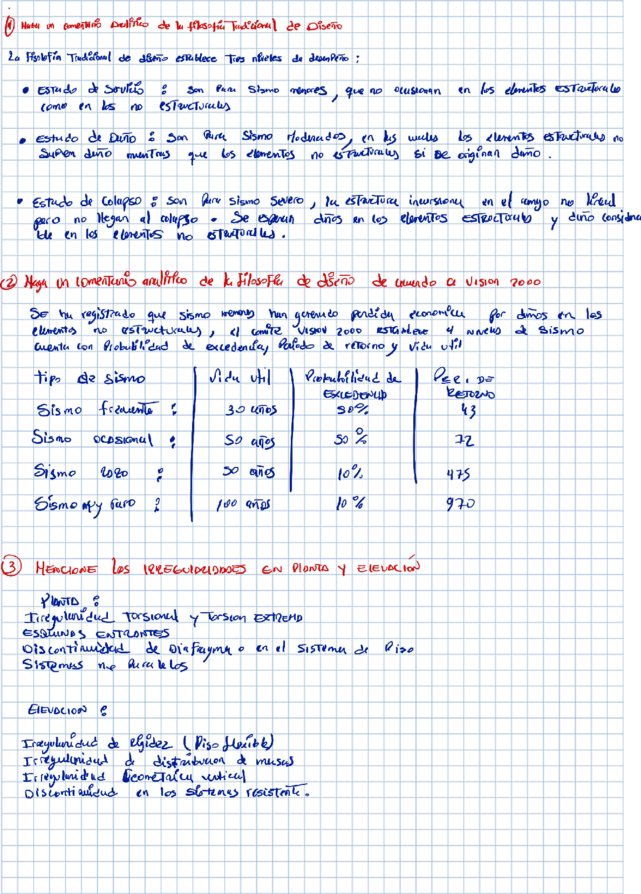 ① Haga un comentario analítico de la filosofía Tradicional de Diseño
La filosofía Tradicional de diseño establece Tres niveles de desempeño :
• Estado de Servicio : Son Para Sismo menores, que no ocasionan en los elementos estructurales
como en los no estructurales
• Estado de Daño : Son Para Sismo Moderados, en los cuales los elementos estructurales no
Sufren daño mientras que los elementos no estructurales si se originan daño.
• Estado de Colapso : son Para sismo Severo, la estructura incursiona en el rango no lineal
pero no llegan al colapso. Se esperan daños en los elementos estructurales y daño considera
ble en los elementos no estructurales.
② Haga un comentario analítico de la filosofía de diseño de acuerdo a VISION 2000
Se ha registrado que sismo menores han generado perdida económica por daños en los
elementos no estructurales, el comite VISION 2000 establece 4 niveles de sismo
cuenta con Probabilidad de excedencia, Periodo de retorno y vida util
tipo de sismo Vida util Probabilidad de EXCEDENCIA PER. DE RETORNO
Sismo frecuente : 30 años 50% 43
Sismo ocasional : 50 años 50 % 72
Sismo raro : 50 años 10% 475
Sismo muy raro : 100 años 10 % 970
③ MENCIONE LOS IRREGULARIDADES EN PLANTA Y ELEVACIÓN
PLANTA :
Irregularidad Torsional y Torsion EXTREMA
ESQUINAS ENTRANTES
Discontinuidad de Diafragma o en el sistema de Piso
Sistemas no Paralelos
ELEVACION :
Irregularidad de rigidez (Piso flexible)
Irregularidad de distribucion de masas
Irregularidad Geometrica vertical
Discontinuidad en los sistemas resistente.